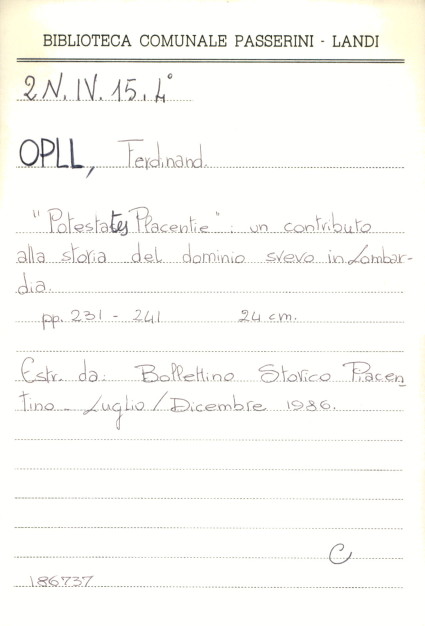 BIBLIOTECA COMUNALE PASSERINI - LANDI
2 N. IV. 15. 4°
OPLL, Ferdinand.
"Potestates Placentie": un contributo
alla storia del dominio svevo in Lombar-
dia.
pp. 231 - 241 24 cm.
Estr. da: Bollettino Storico Piacen
tino - Luglio / Dicembre 1986.
C
186737